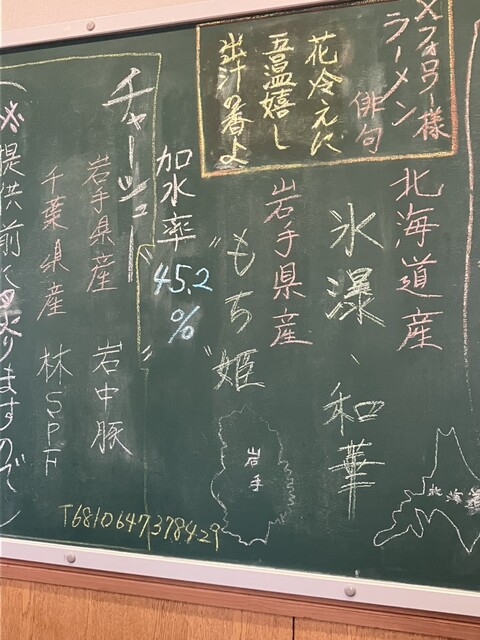 Xフォロワー様
ラーメン
俳句
花冷えに
五温嬉し
出汁の香よ
北海道産
氷瀑、和華
岩手県産
"もち姫"
加水率
45.2
%
チャーシュー
岩手県産 岩中豚
千葉県産 林SPF
(※提供前く炙りますので
岩手
北海道
T6810647378429